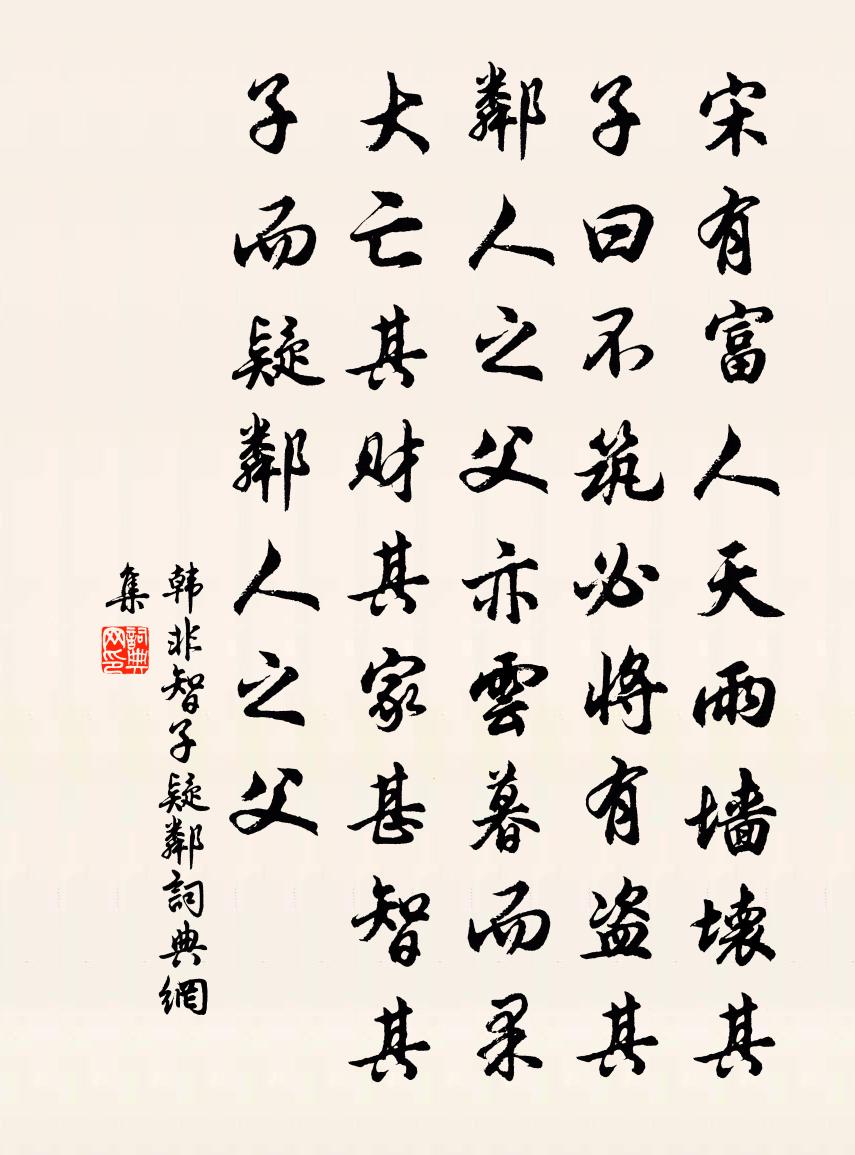 宋有富人天雨墙壞其
子曰不筑必將有盗其
鄰人之父亦雲暮而果
大亡其财其家甚智其
子而疑鄰人之父
韩非智子疑鄰詞典網
集
詞典
网印